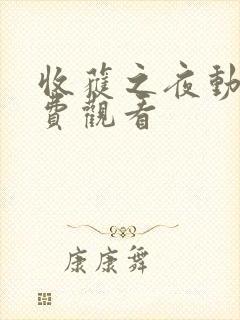 收穫之夜動
費觀看
康康舞